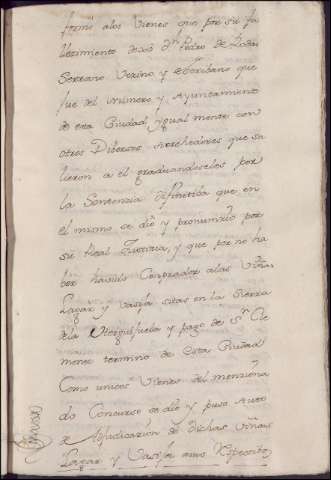 formó alos Vienes que por su fa
llecimiento dexó Dn Pedro de Rodas
Serrano Vezino y escribano que
fue del Numero y Ayuntamiento
de esta Ciudad ygual mente con
otros Diversos Acrehedores que sa
lieron a el graduandoseles por
la Sentencia difinitiba que en
el mismo se dió y pronunzió por
su Real Justizia, y que por no ha
ber havido Conprador alas Viñas
Lagar y vasija sitas en la Sierra
de la y pago de Sn Cle
mente termino de esta Ciudad
Como unicos Vienes del menziona
do Concurso se dió y puso Auto
de Adjudicazion de dichas viñas
Lagar y Vasija